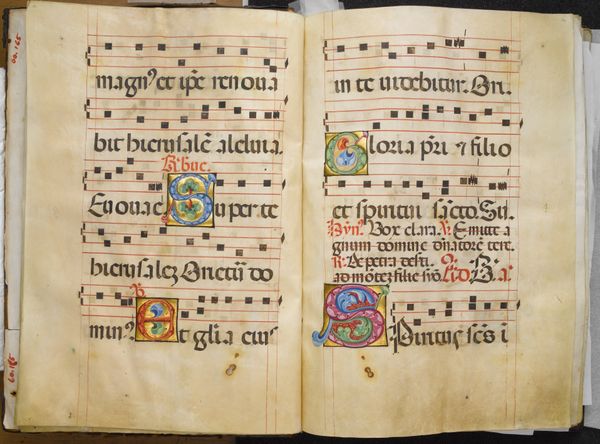 60.165
magn⁹ et ip̄e renoua
bit hierusalē aleluia.
R̃. bue.
Euouae Super te
hierusalez Orietur do
V̊
min⁹. Et gl̄ia eius
60.165
in te uidebitur. Ori.
Gloria pr̄i ⁊ filio
et spiritui sācto. Su.
Hyn̄⁹ Vox clara. V̊. Emitte a
gnum domine dn̄atorē terre.
R̃. De petra deserti
ad mōtez filie syō Ad B. a.
Spiritus sc̄s i